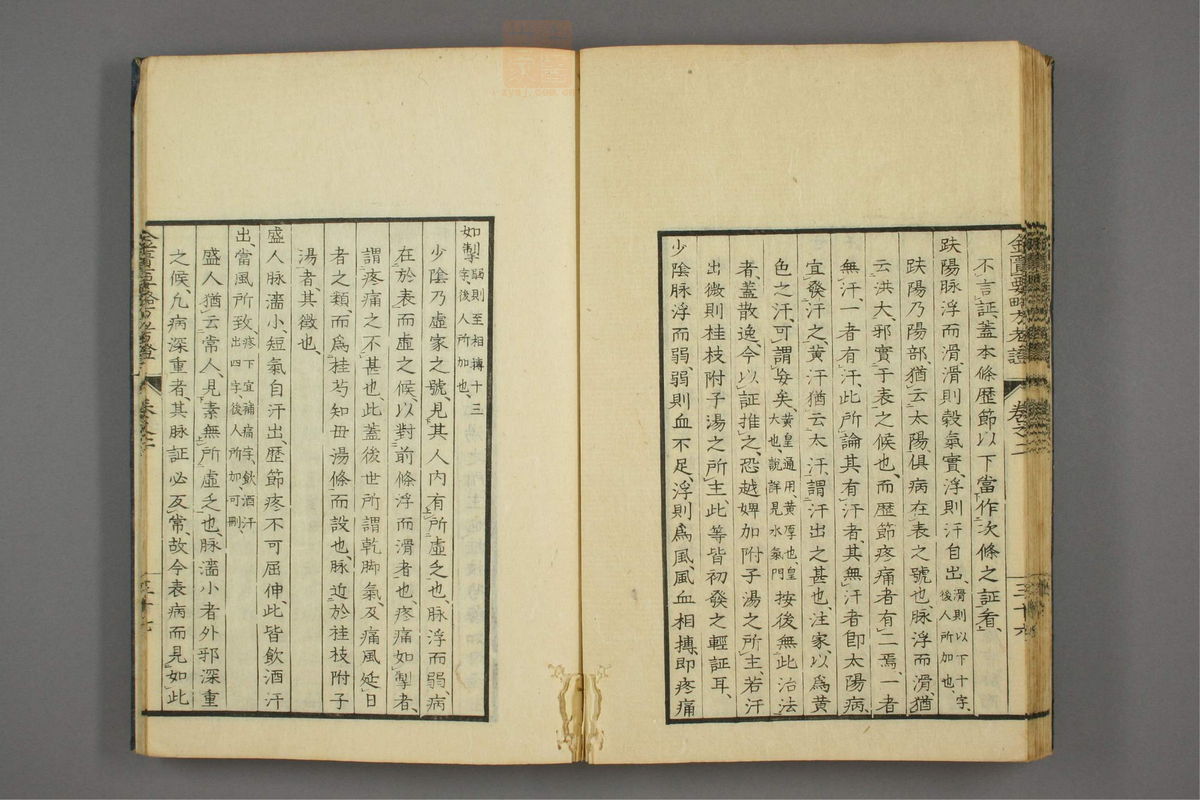 不言証、蓋本條歷節以下當作次條之証看、
趺陽脉浮而滑滑則穀氣實、浮則汗自出、滑則以下十字、後人所加也、
趺陽乃陽部、猶云太陽、俱病在表之號也、脉浮而滑、猶
云洪大、邪實于表之候也、而歷節疼痛者有二焉、一者
無汗、一者有汗、此所論其有汗者、其無汗者卽太陽病、
宜發汗之、黃汗猶云大汗、謂汗出之甚也、注家以爲黃
色之汗、可謂妄矣、黃皇通用、黃厚也、皇大也、說詳見水氣門按後無此治法
者、蓋散逸、今以証推之、恐越婢加附子湯之所主、若汗
出微則桂枝附子湯之所主、此等皆初發之輕証耳、
少陰脉浮而弱、弱則血不足、浮則爲風、風血相搏卽疼痛
如掣弱則至相搏十三字、後人所加也、
少陰乃虛家之號、見其人內有所虛之也、脉浮而弱、病
在於表而虛之候、以對前條浮而滑者也疼痛如掣者、
謂疼痛之不甚也、此蓋後世所謂乾脚氣、及痛風延日
者之類、而爲桂芍知毋湯條而設也、脉近於桂枝附子
湯者、其徵也、
盛人脉濇小、短氣自汗出、歷節疼不可屈伸、此皆飲酒汗
出、當風所致、疼下宜補痛字、飲酒汗出四字、後人所加、可刪、
盛人猶云常人、見素無所虛之也、脉濇小者外邪深重
之候、凡病深重者、其脉証必反常、故今表病而見如此